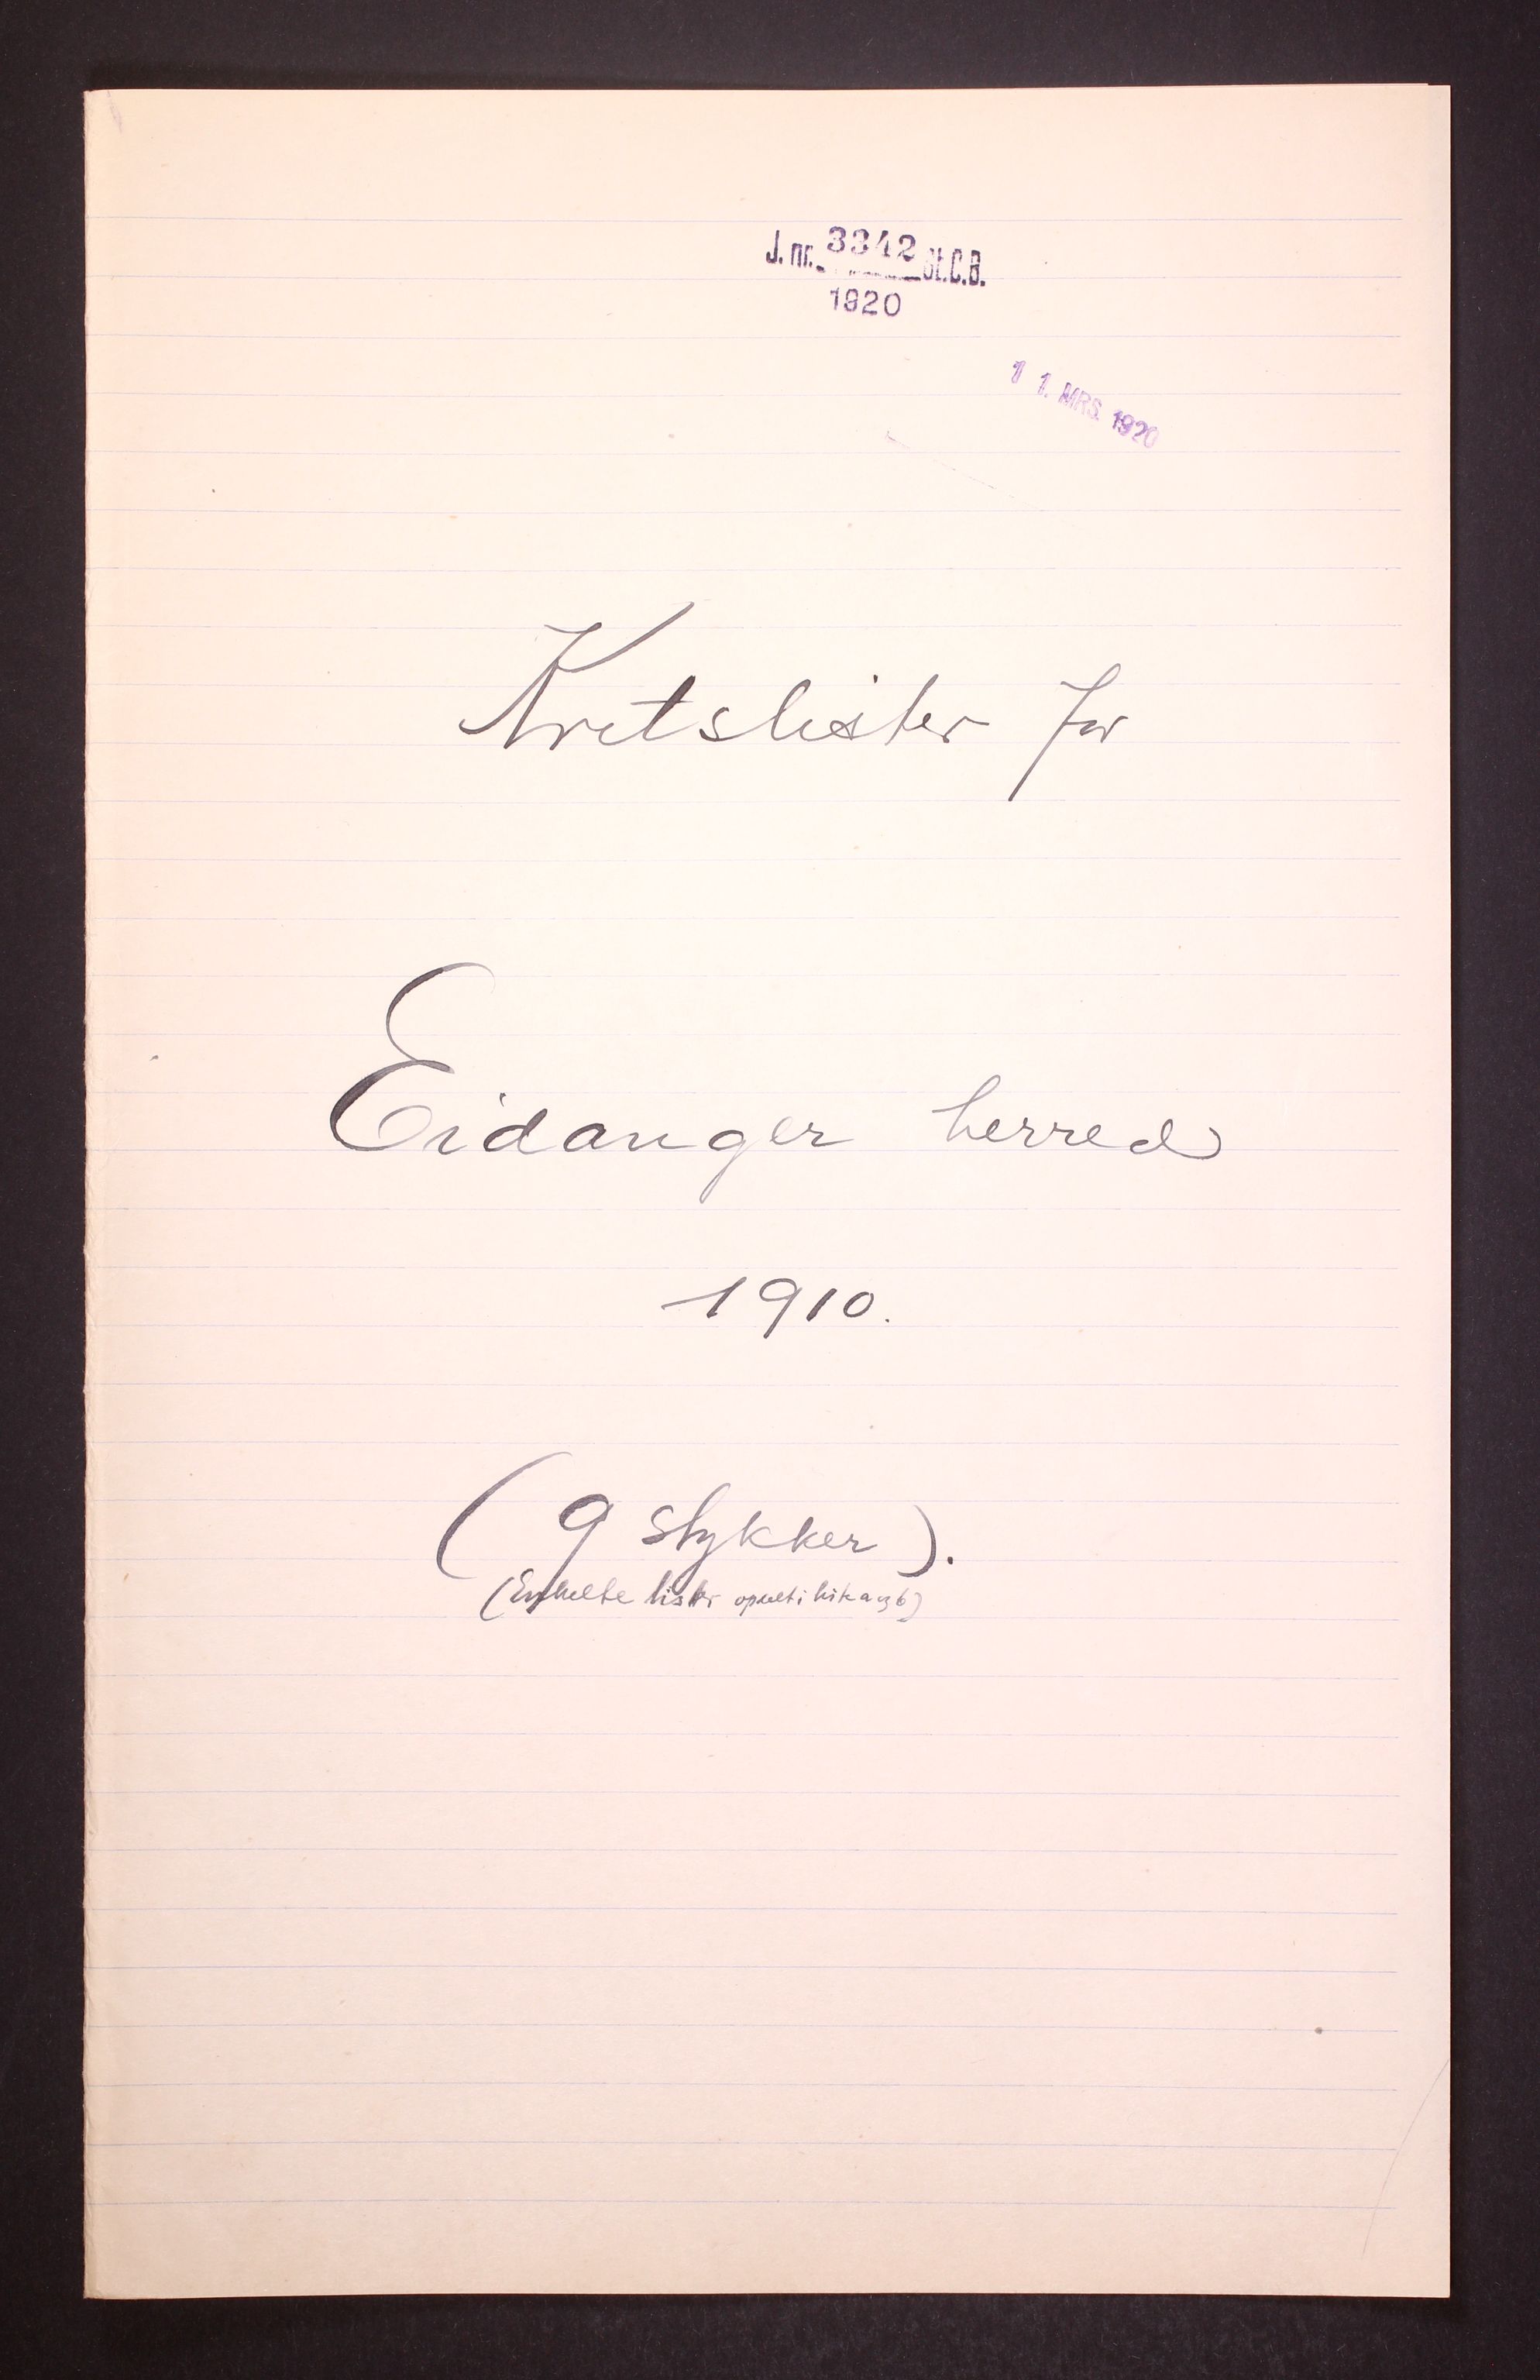 J. nr. 3342 St.C.B.
1920
11. MRS. 1920
Kretslister for
Eidanger herred
1910.
(9 stykker).
(Enkelte lister opdelt i liste a og b)